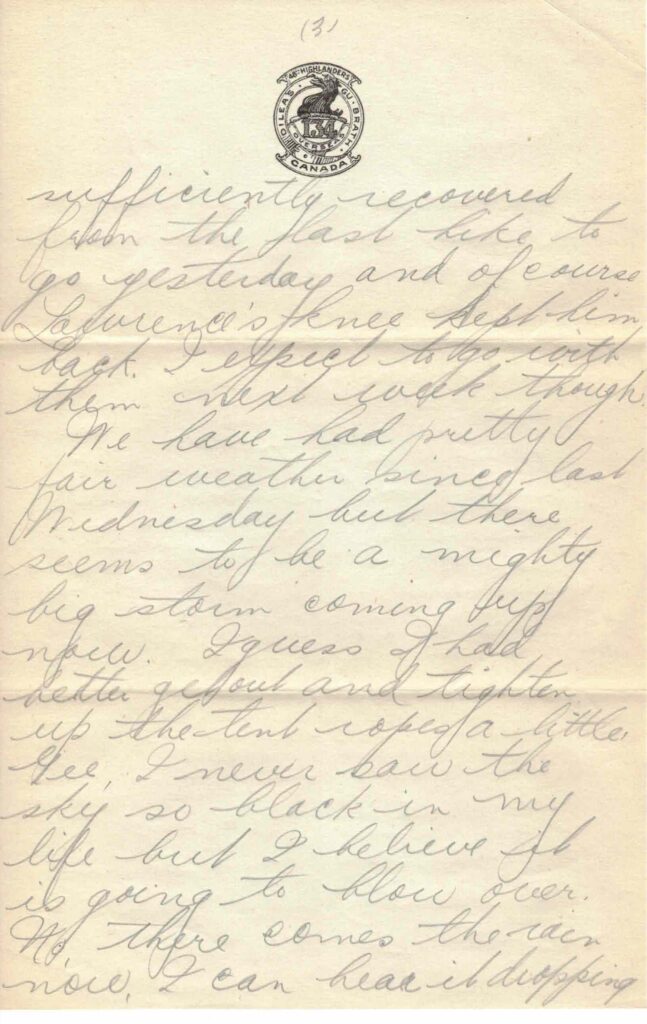 (3)
48TH HIGHLANDERS
DILEAS GU BRATH
134
OVERSEAS
CANADA
sufficiently recovered
from the last hike to
go yesterday and of course
Lawrence's knee kept him
back. I expect to go with
them next week though.
We have had pretty
fair weather since last
Wednesday but there
seems to be a mighty
big storm coming up
now. I guess I had
better get out and tighten
up the tent ropes a little.
Gee, I never saw the
sky so black in my
life but I believe it
is going to blow over.
No, there comes the rain
now, I can hear it dropping